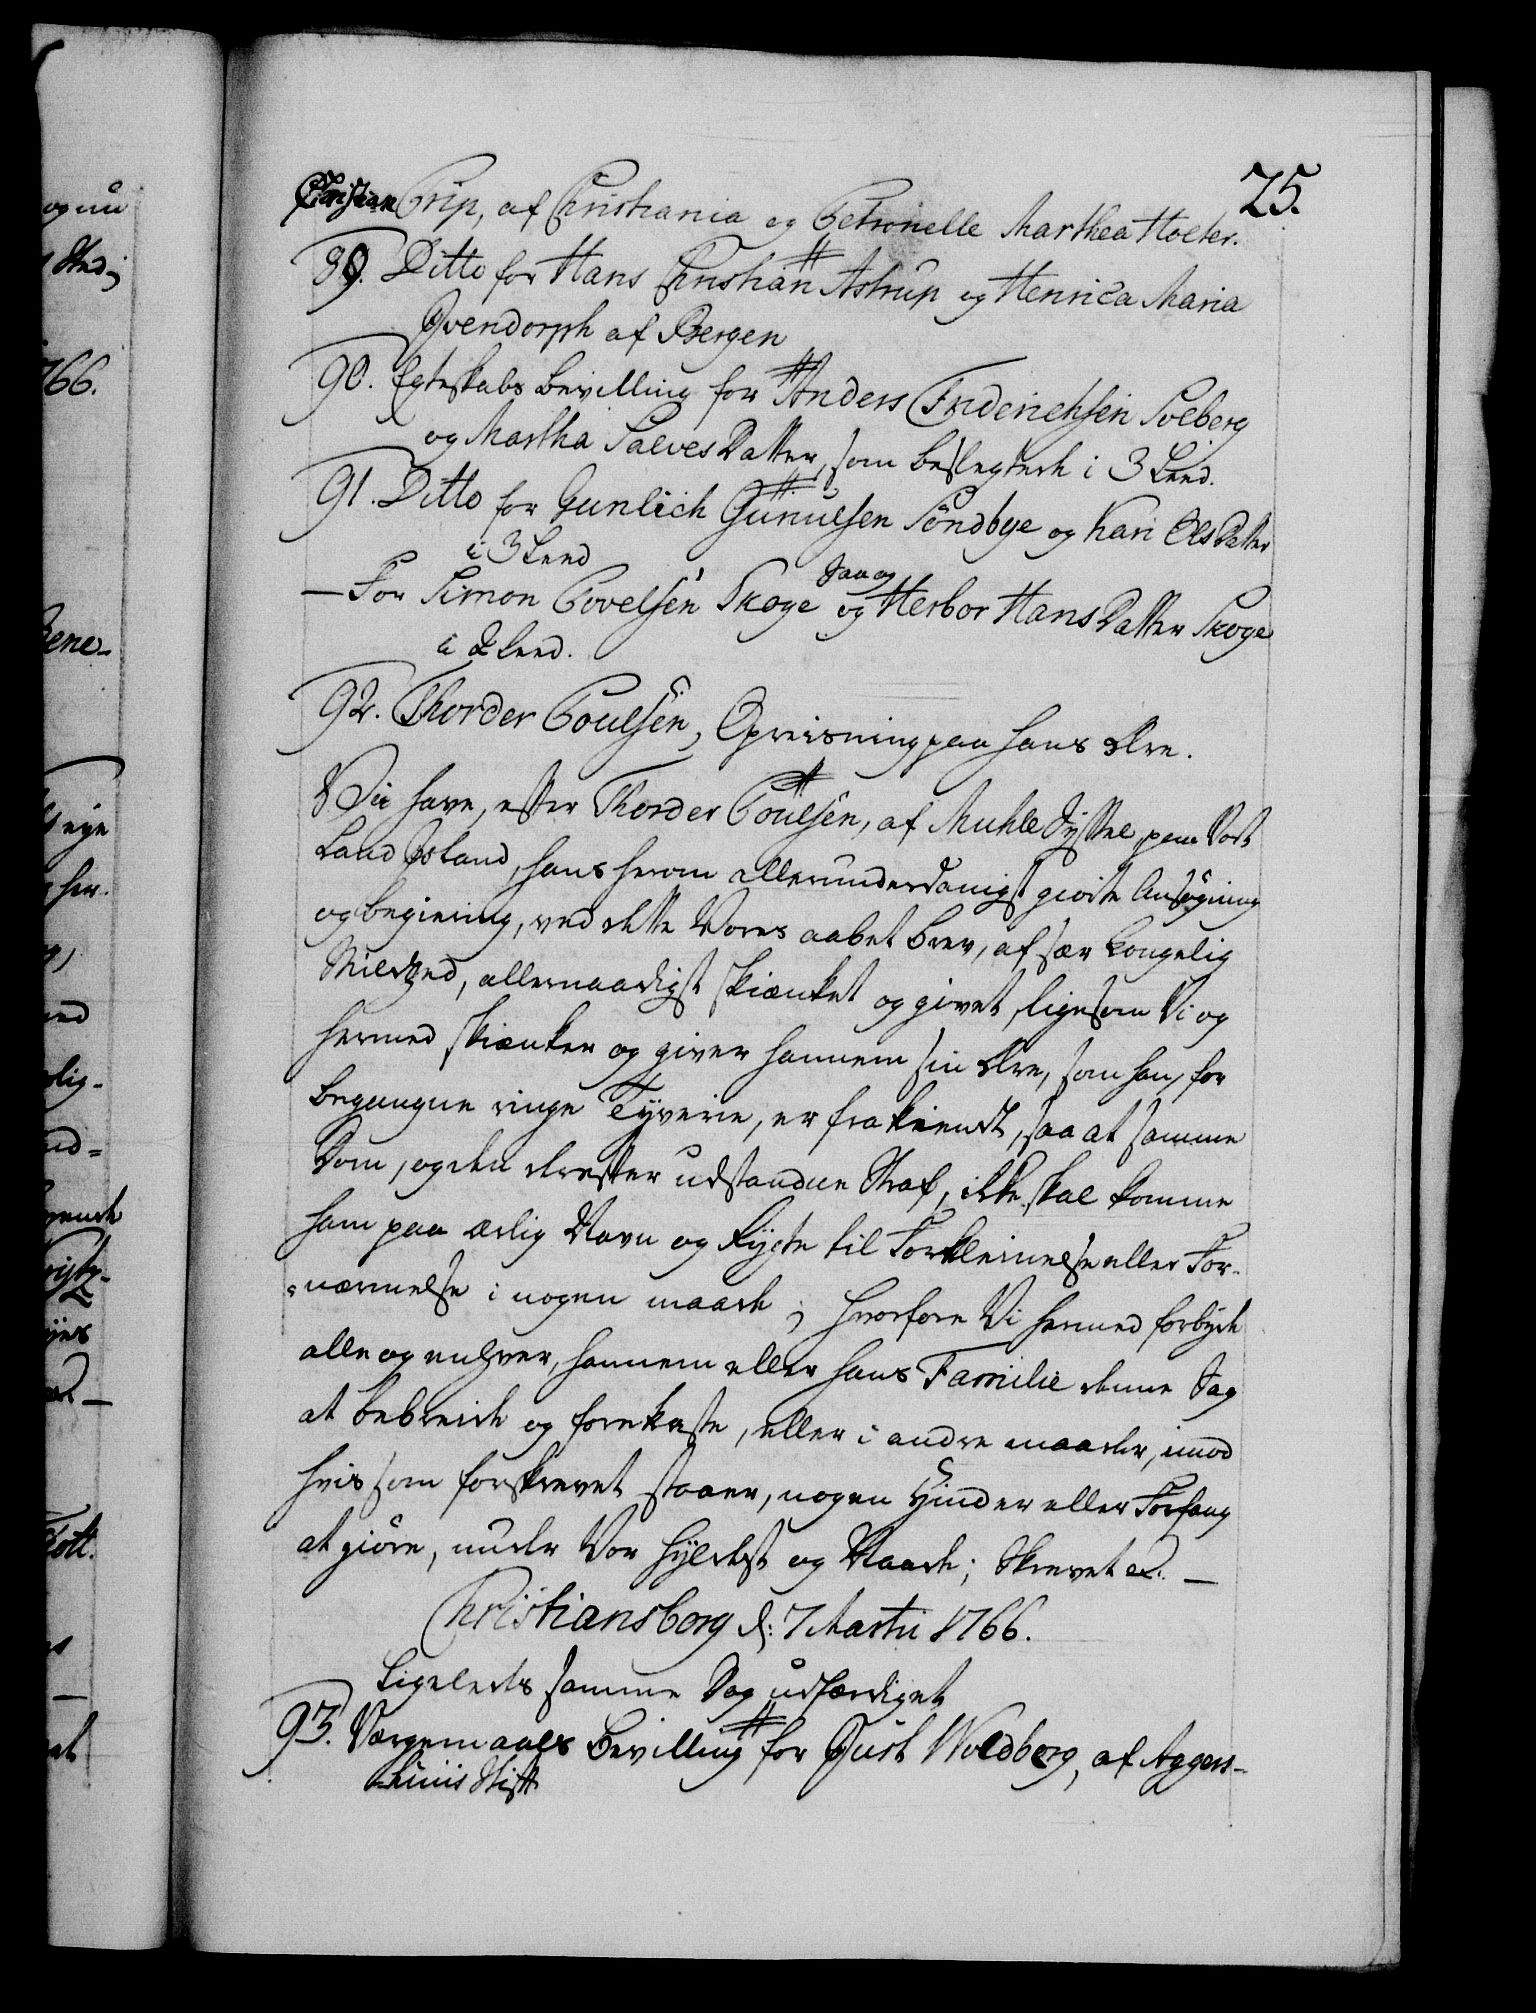 25.
Christian Prip, af Christiania og Petronelle Marthea Holter.
89. Ditto for Hans Christian Astrup og Henrica Maria
Qvendorph af Bergen
90. Egteskabs Bevilling for Anders Friderichsen Solberg
og Martha Salves Datter, som beslegtede i 3 Leed.
91. Ditto for Gunlich Gunulsen Søndbye og Kari Ols Datter
i 3 Leed
– For Simon Povelsen Skoge saa og Herbor Hans Datter Skoge
i 2 Leed.
92. Thorder Poulsen, Opreisning paa hans Ære.
Vii have, efter Thorder Poulsen, af Muhle Syssel paa Vort
Land Island, hans herom allerunderdanigst giorte Ansøgning
og begiering, ved dette Vores aabet Brev, af sær Kongelig
Mildhed, allernaadigst skiænket og givet, ligesom Vi og
hermed skiænker og giver hannem sin Ære, som han, for
begangne ringe Tyverie, er frakiendt, saa at samme
Dom, og den derefter udstandne Straf, ikke skal komme
ham paa ærlig Navn og Rygte til Forkleinelse eller For-
nærmelse i nogen maade; hvorfore Vi hermed forbyde
alle og enhver, hannem eller hans Familie denne Sag
at bebreide og forekaste, eller i andre maader, imod
hvis som forskrevet staaer, nogen Hinder eller Forfang
at giøre, under Vor Hyldest og Naade; Skrevet &c. –
Christiansborg d: 7 Martii 1766.
Ligeledes samme Dag udfærdiget
93. Værgemaals Bevilling for Just Woldborg, af Aggers-
huuis Stift